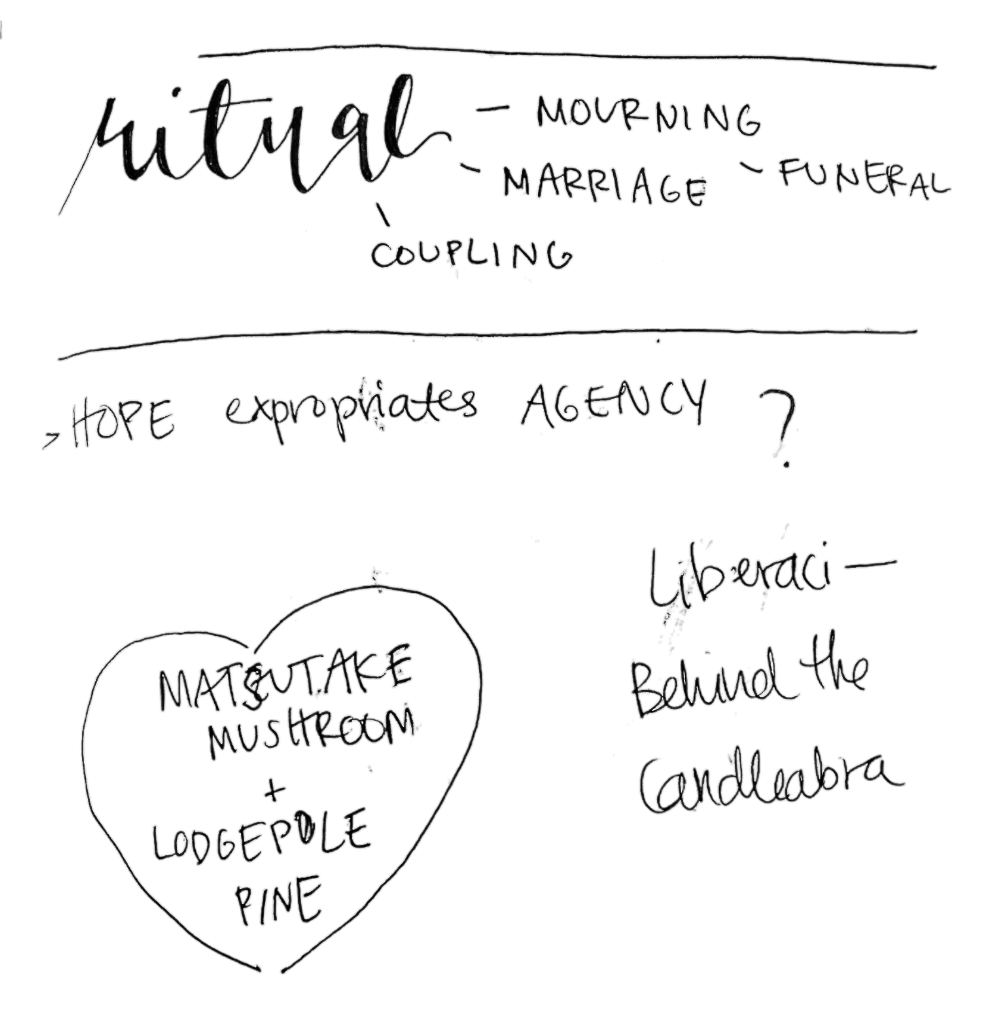 ritual - MOURNING
- MARRIAGE - FUNERAL
\ COUPLING
> HOPE expropriates AGENCY ?
Liberaci —
Behind the
Candleabra
MATSUTAKE
MUSHROOM
+
LODGEPOLE
PINE